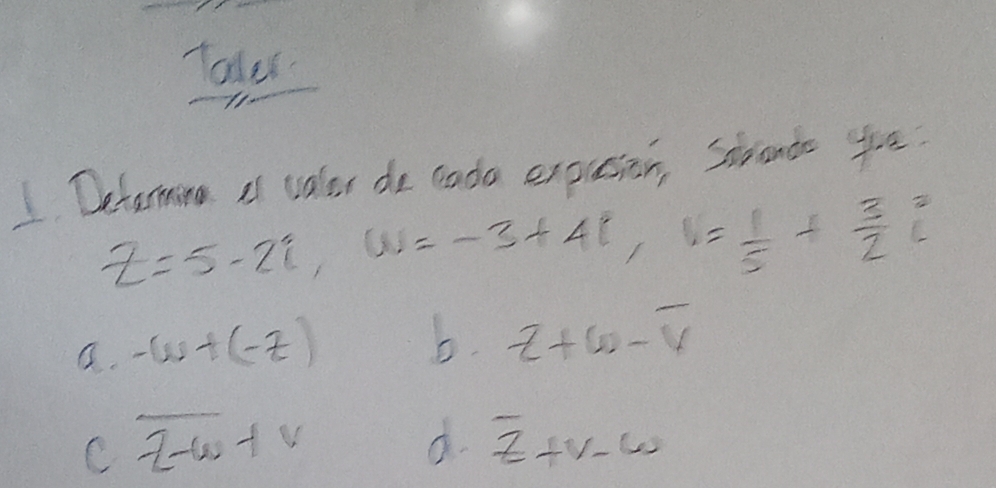 Taller.
1. Determina el valor de cada expresión, sabiendo que:
z = 5 - 2i, w = -3 + 4i, v = 1/5 + 3/2 i
a. -w + (-z) b. z + w - v̅
c. \overline{z-w} + v d. z̅ + v - w